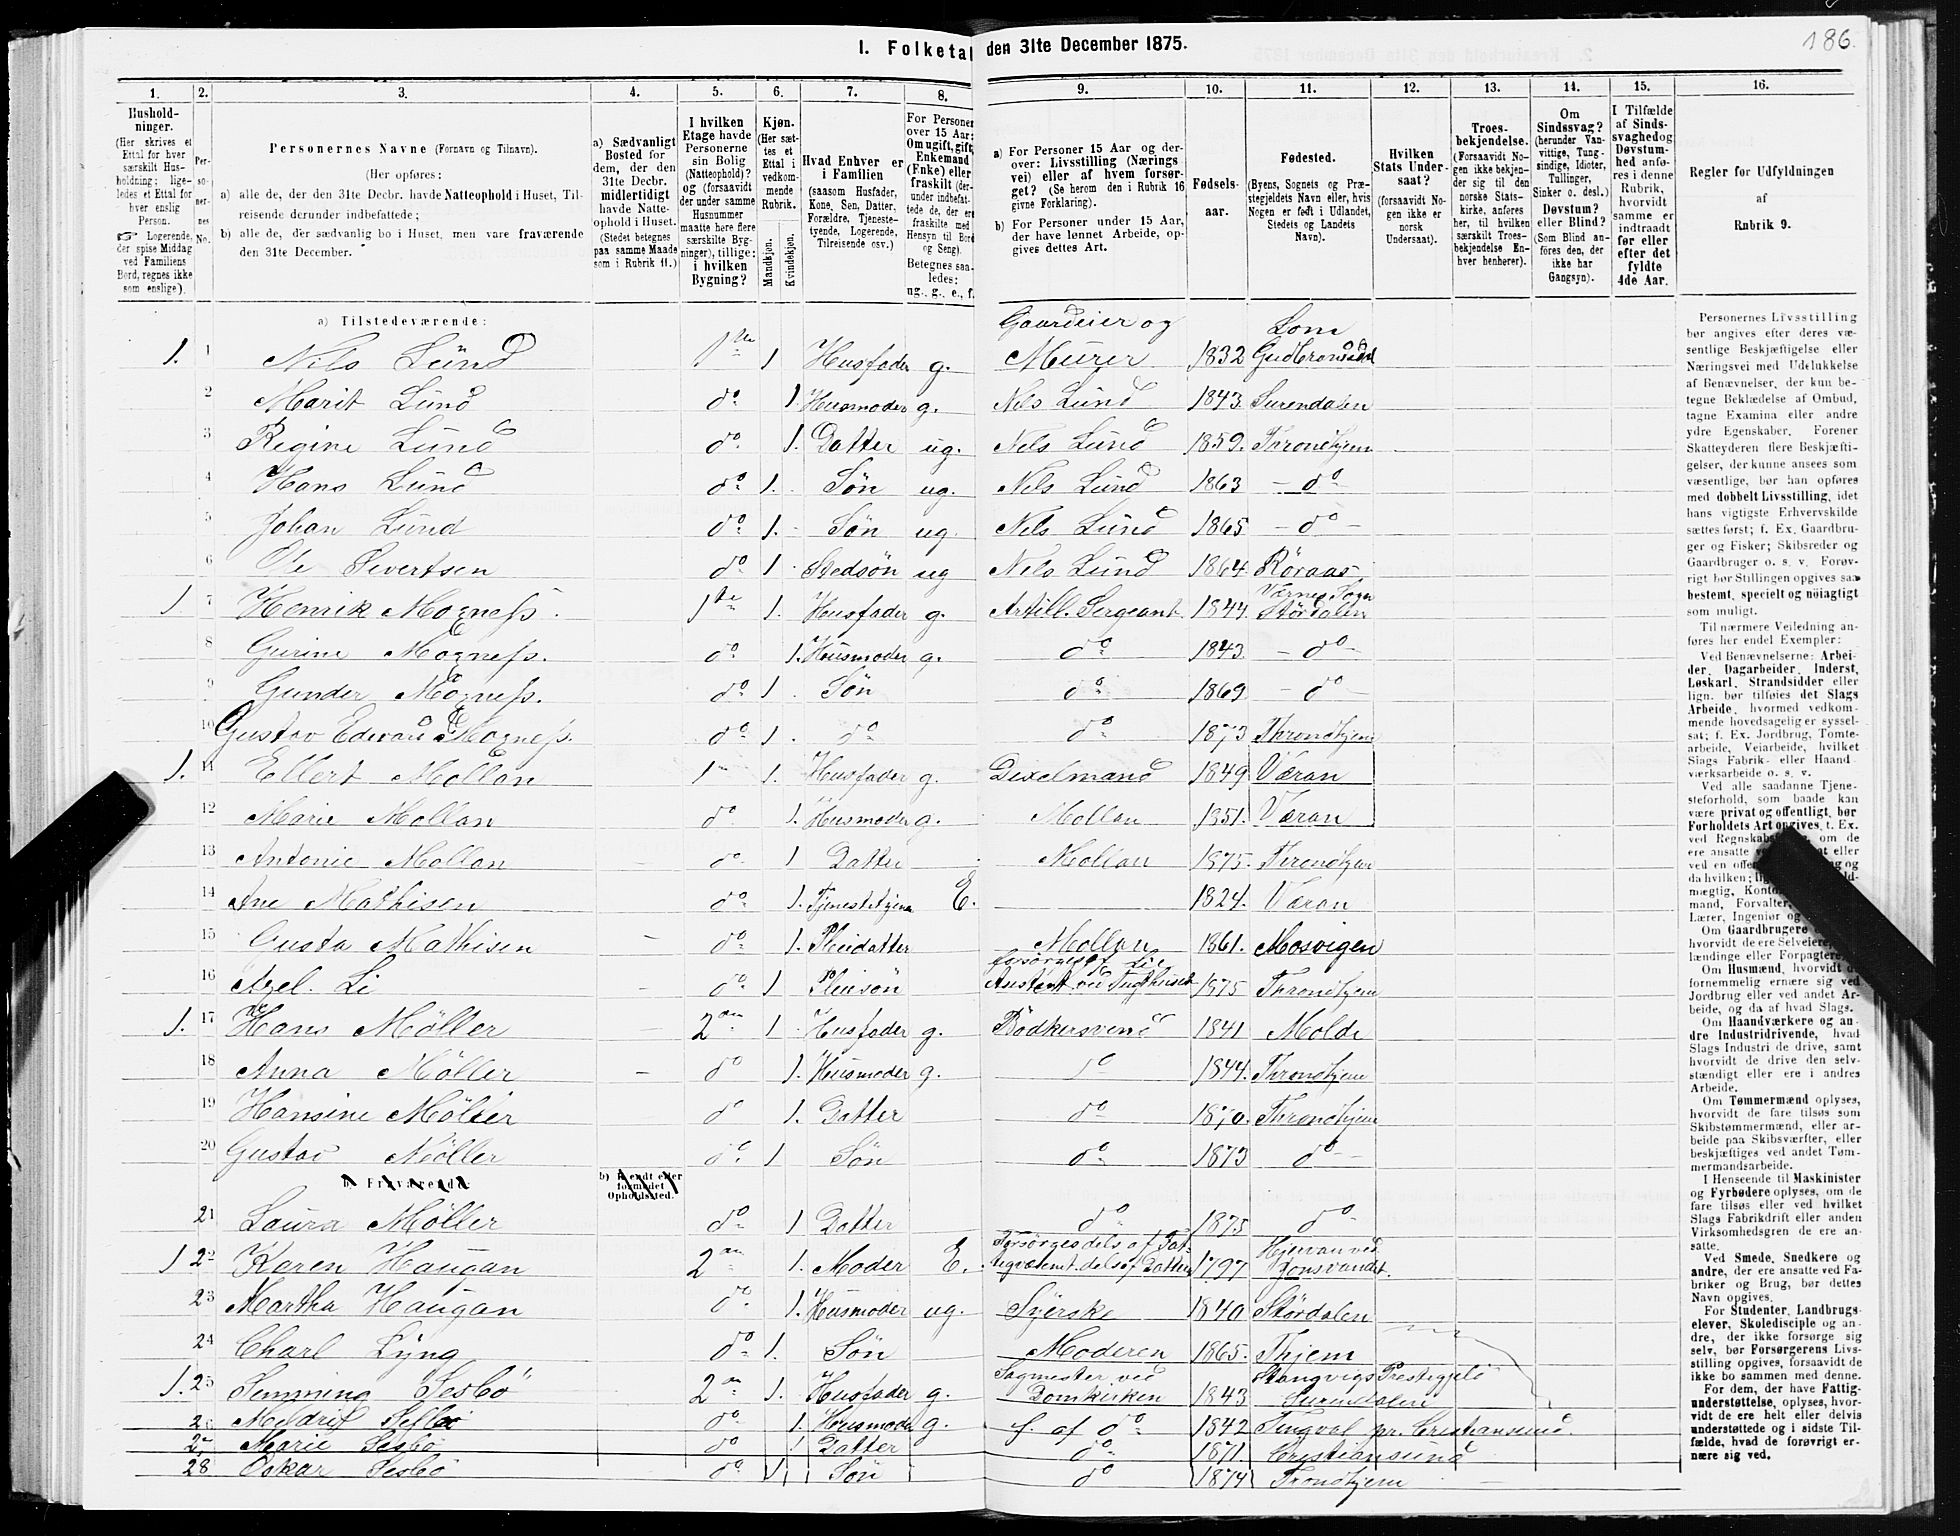 186.
I. Folketal den 31te December 1875.
1. 2. 3. 4. 5. 6. 7. 8. 9. 10. 11. 12. 13. 14. 15. 16.
Husholdninger.
(Her skrives et Ettal for hver særskilt Husholdning; ligeledes et Ettal for hver enslig Person.
☞ Logerende, der spise Middag ved Familiens Bord, regnes ikke som enslige).
Personernes No.
Personernes Navne (Fornavn og Tilnavn).
(Her opføres:
a) alle de, der den 31te Decbr. havde Natteophold i Huset, Tilreisende derunder indbefattede;
b) alle de, der sædvanlig bo i Huset, men vare fraværende den 31te December.
a) Sædvanligt Bosted for dem, der den 31te Decbr. midlertidigt havde Natteophold i Huset.
(Stedet betegnes paa samme Maade som i Rubrik 11.)
I hvilken Etage havde Personerne sin Bolig (Natteophold)? og (forsaavidt der under samme Husnummer maatte høre flere særskilte Bygninger), tillige: i hvilken Bygning?
Kjøn.
(Her sættes et Ettal i vedkommende Rubrik.
Mandkjøn. Kvindekjøn.
Hvad Enhver er i Familien
(saasom Husfader, Kone, Søn, Datter, Forældre, Tjenestetyende, Logerende, Tilreisende osv.)
For Personer over 15 Aar: Om ugift, gift, Enkemand (Enke) eller fraskilt (derunder indbefattede de, der ere fraskilte med Hensyn til Bord og Seng).
Betegnes saaledes: ug., g., e., f.
a) For Personer 15 Aar og derover: Livsstilling (Næringsvei) eller af hvem forsørget? (Se herom den i Rubrik 16 givne Forklaring).
b) For Personer under 15 Aar, der have lønnet Arbeide, opgives dettes Art.
Fødselsaar.
Fødested.
(Byens, Sognets og Præstegjeldets Navn eller, hvis Nogen er født i Udlandet, Stedets og Landets Navn).
Hvilken Stats Undersaat?
(forsaavidt Nogen ikke er norsk Undersaat).
Troesbekjendelse.
(Forsaavidt Nogen ikke bekjender sig til den norske Statskirke, anføres her, til hvilken særskilt Troesbekjendelse Enhver henhører).
Om Sindssvag?
(herunder Vanvittige, Tungsindige, Idioter, Tullinger, Sinker o. desl.)
Døvstum? eller Blind?
(Som Blind anføres den, der ikke har Gangsyn).
I Tilfælde af Sindssvaghed og Døvstumhed anføres i denne Rubrik, hvorvidt samme er indtraadt før eller efter det fyldte 4de Aar.
Regler for Udfyldningen
af
Rubrik 9.
a) Tilstedeværende:
Gaardeier og Lom
1. 1 Nils Lund 1ste 1 Husfader g. Murer 1832 Gudbransdal
2 Marit Lund do 1. Husmoder g. Nils Lund 1843. Surendalen
3 Regine Lund do 1. Datter ug. Nils Lund 1859. Throndhjem
4 Hans Lund do 1. Søn ug. Nils Lund 1863 - do
5 Johan Lund do 1. Søn ug. Nils Lund 1865 - do -
6 Ole Sivertsen do 1 Stedsøn ug Nils Lund 1864 Röraas
Værnes Sogn
1. 7 Henrik Mogness. 1ste 1. Husfader g. Artill. Sergeant. 1844. Stördalen
8 Gurine Mogness. do 1. Husmoder g. do 1843 - do -
9 Gunder Mogness. do 1 Søn do 1869 - do -
10 Gustav Edvard Mogness. do 1. do do 1873 Throndhjem
1. 11 Ellert Mollan 1 1. Husfader g. Dixelmand 1849 Væran
12 Marie Mollan do 1. Husmoder g. Mollan 1851. Væran
13 Antonie Mollan do 1 Datter Mollan 1875. Throndhjem
14 Ane Mathisen do 1. E. 1824. Væran
15 Gusta Mathisen do 1. Pleidatter Mollan 1861. Mosvigen
forsørges af Lie
16 Axel. Li do 1 Pleisøn Ansat ved Tugthuset 1875 Throndhjem
1. 17 Hans Möller 2den 1 Husfader g. Bödkersvend 1841 Molde
18 Anna Möller do 1. Husmoder g. do 1844. Throndhjem
19 Hansine Möller do 1. Datter do 1870. Throndhjem
20 Gustav Möller do 1 Søn do 1873 do -
b) Fraværende: b) Kjendt eller formodet Opholdssted.
21 Laura Möller do 1 Datter do 1875 do
Forsørges dels af Fat- Hjervan ved
1 22 Karen Haugan 2den 1. Moder E. tigvæsenet dels af Datter 1797 Jonsvandet.
23 Martha Haugan do 1. Husmoder ug. Syerske 1840 Stördalen
24 Charl Lyng do 1. Søn Moderen 1865. Thjem
Sagmester ved Stangvigs Prestegjeld
1. 25 Semming Sesbö 2den 1. Husfader g. Domkirken 1843 Surendalen
26 do 1. Husmoder g. f. af do 1842 Tingvol pr. Cristiansund.
27 Marie Sesbö do 1 Datter do 1871. Cristiansund
28 Oskar Sesbö do 1 Søn do 1874 Trondhjem
Personernes Livsstilling bør angives efter deres væsentlige Beskjæftigelse eller Næringsvei med Udelukkelse af Benævnelser, der kun betegne Beklædelse af Ombud, tagne Examina eller andre ydre Egenskaber. Forener Skatteyderen flere Beskjæftigelser, der kunne ansees som væsentlige, bør han opføres med dobbelt Livsstilling, idet hans vigtigste Erhvervskilde sættes først; f. Ex. Gaardbruger og Fisker; Skibsreder og Gaardbruger o. s. v. Forøvrigt bør Stillingen opgives saa bestemt, specielt og nøiagtigt som muligt.
Til nærmere Veiledning anføres her endel Exempler:
Ved Benævnelserne: Arbeider, Dagarbeider, Inderst, Løskarl, Strandsidder eller lign. bør tilføies det Slags Arbeide, hvormed vedkommende hovedsagelig er sysselsat; f. Ex. Jordbrug, Tomtearbeide, Veiarbeide, hvilket Slags Fabrik- eller Haandværksarbeide o. s. v.
Ved alle saadanne Tjenesteforhold, som baade kan være privat og offentligt, bør Forholdets Art opgives, t. Ex. ved Regnskabs om de ere ansatte eller ved en offen og da hvilken; mægtig, Kont mand, Forvalter, Lærer, Ingeniør og
Om Gaardbrugere hvorvidt de ere Selveiere, lændinge eller Forpagtere.
Om Husmænd, hvorvidt de fornemmelig ernære sig ved Jordbrug eller ved andet Arbeide, og da af hvad Slags.
Om Haandværkere og andre Industridrivende, hvad Slags Industri de drive, samt hvorvidt de drive den selvstændigt eller ere i andres Arbeide.
Om Tømmermænd oplyses, hvorvidt de fare tilsøs som Skibstømmermænd, eller arbeide paa Skibsværfter, eller beskjæftiges ved andet Tømmermandsarbeide.
I Henseende til Maskinister og Fyrbødere oplyses, om de fare tilsøs eller ved hvilket Slags Fabrikdrift eller anden Virksomhedsgren de ere ansatte.
Ved Smede, Snedkere og andre, der ere ansatte ved Fabriker og Brug, bør dettes Navn opgives.
For Studenter, Landbrugselever, Skoledisciple og andre, der ikke forsørge sig selv, bør Forsørgerens Livsstilling opgives, forsaavidt de ikke bo sammen med denne.
For dem, der have Fattigunderstøttelse, oplyses, hvorvidt de ere helt eller delvis understøttede og i sidste Tilfælde, hvad de forøvrigt ernære sig ved.